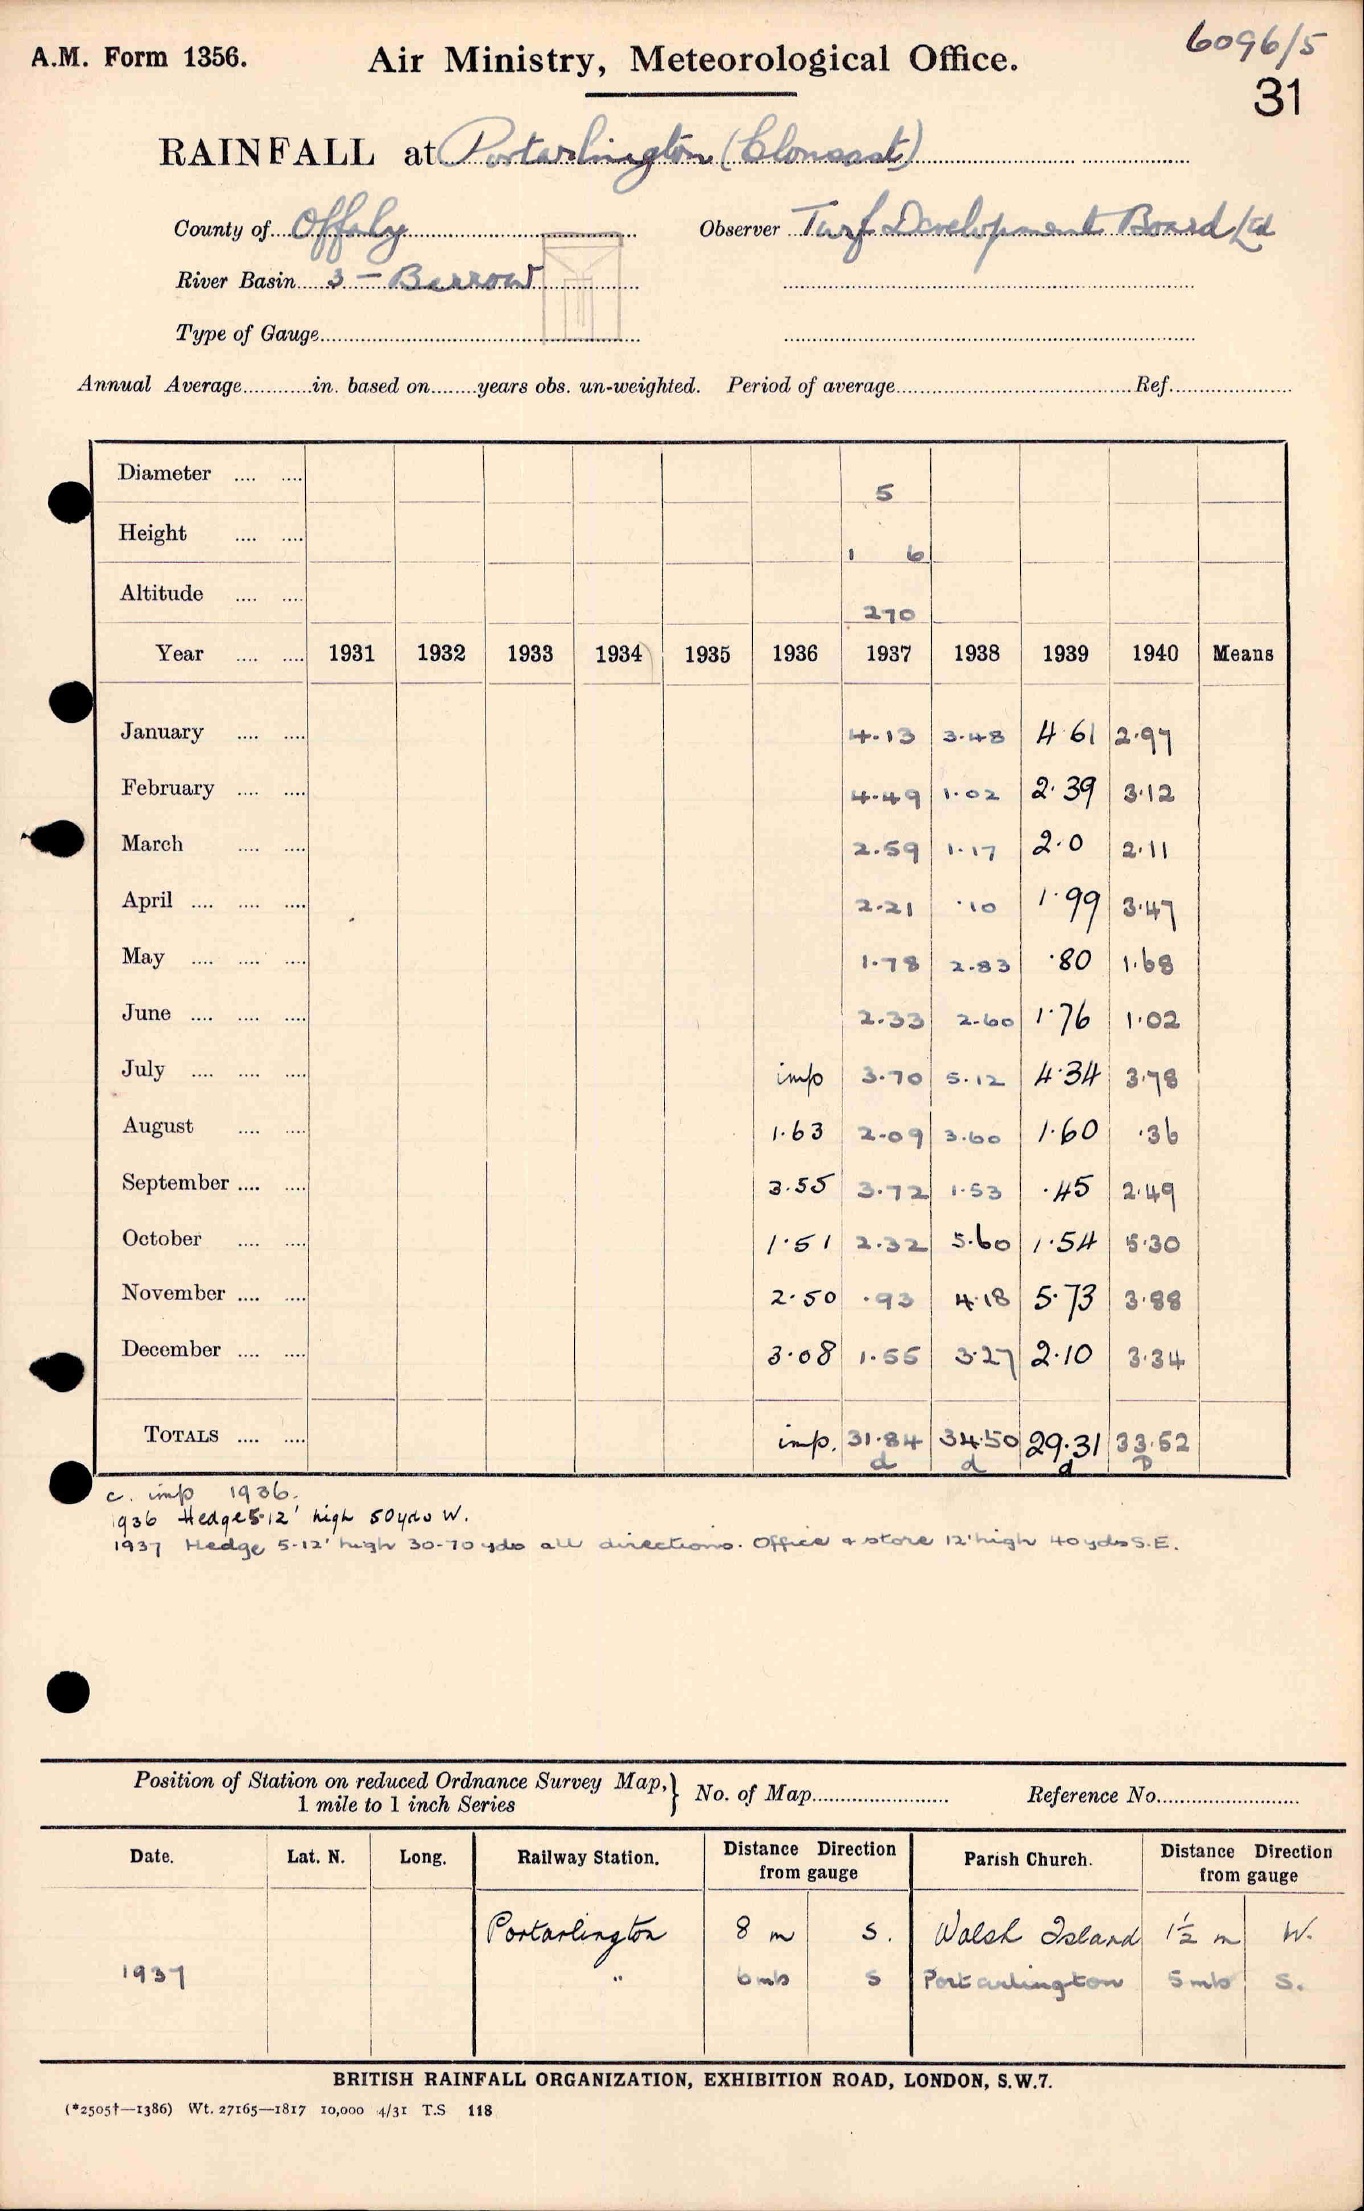 6096/5
A.M. Form 1356. Air Ministry, Meteorological Office.
31
RAINFALL at Portarlington (Clonsast)
County of Offaly Observer Turf Development Board Ltd
River Basin 3 — Barrow
Type of Gauge
Annual Average in. based on years obs. un-weighted. Period of average Ref.
Diameter 5
Height 1 6
Altitude 270
Year 1931 1932 1933 1934 1935 1936 1937 1938 1939 1940 Means
January 4.13 3.48 4.61 2.97
February 4.49 1.02 2.39 3.12
March 2.59 1.17 2.0 2.11
April 2.21 .10 1.99 3.47
May 1.78 2.83 .80 1.68
June 2.33 2.60 1.76 1.02
July imp 3.70 5.12 4.34 3.78
August 1.63 2.09 3.60 1.60 .36
September 3.55 3.72 1.53 .45 2.49
October 1.51 2.32 5.60 1.54 5.30
November 2.50 .93 4.18 5.73 3.88
December 3.08 1.55 3.27 2.10 3.34
TOTALS imp. 31.84 34.50 29.31 33.52
d d d D
c. imp 1936.
1936 Hedge 5-12' high 50 yds W.
1937 Hedge 5-12' high 30-70 yds all directions. Office & store 12' high 40 yds S.E.
Position of Station on reduced Ordnance Survey Map, 1 mile to 1 inch Series } No. of Map Reference No.
Date. Lat. N. Long. Railway Station. Distance Direction from gauge Parish Church. Distance Direction from gauge
Portarlington 8 m S. Walsh Island 1½ m W.
1937 " 6 mls S Portarlington 5 mls S.
BRITISH RAINFALL ORGANIZATION, EXHIBITION ROAD, LONDON, S.W.7.
(*2505†—1386) Wt. 27165—1817 10,000 4/31 T.S 118